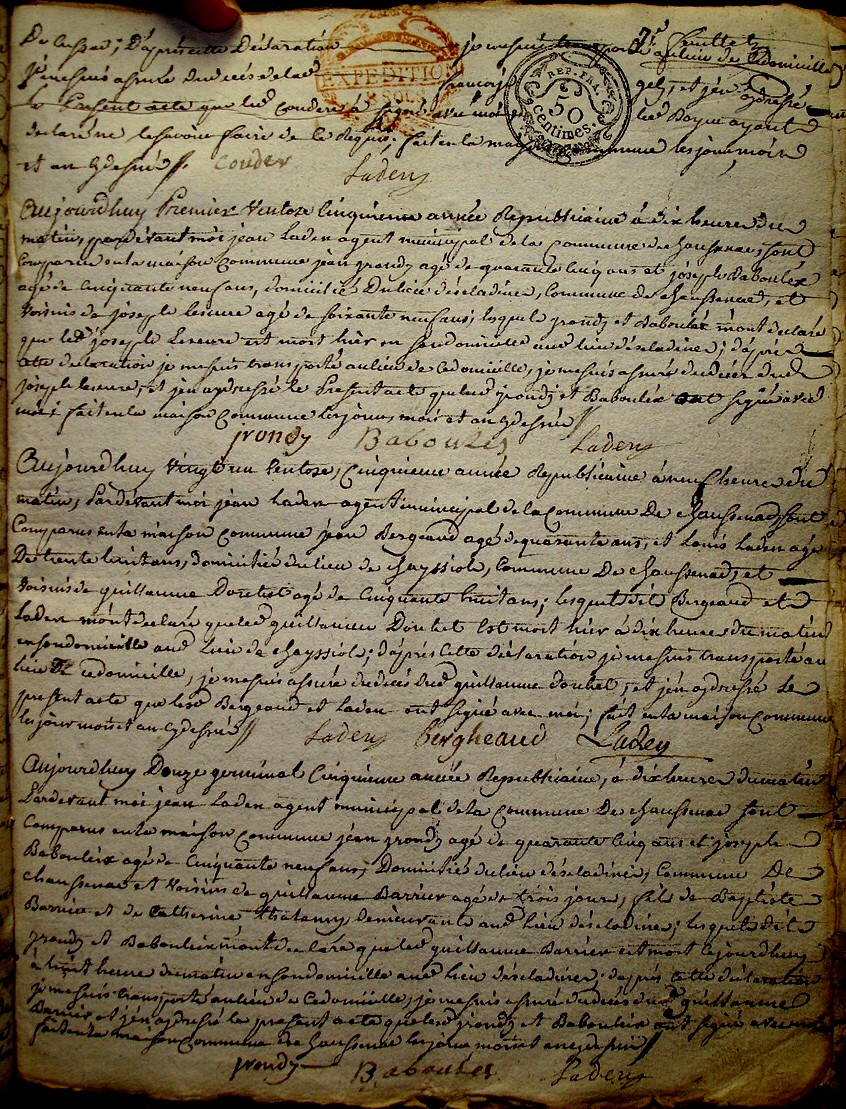 2e feuillet
De Cussac; D'après cette Déclaration je me suis transporté au lieu de Ce domicille
je me suis assuré du décès de lad. françoise et j'en ay dressé
le Present acte que led. Couderc a signé avec moi led. Boyer ayant
declaré ne le savoir faire de le Requis. fait en la maison Commune les jour, mois
et an Cy dessus //. Couder
Ladeuy
REP. FRA.
50
centimes.
EXPEDITION
SOLS
Aujourdhuy Premier Ventoze Cinquieme année Republicaine à dix heures du
matin, pardevant moi jean Laden agent municipal de la Commune de Chaussenac, sont
Comparus en la maison Commune jean jrondy agé de quarante Cinq ans et joseph Baboulix
agé de Cinquante neuf ans, domicilié Du lieu d'escladines, Commune de Chaussenac, et
Voisins de joseph Leseure agé de soixante neuf ans; lesquels jrondy et Baboulix m'ont declaré
que led. joseph Leseure est mort hier en son domicille aud. lieu d'escladines; d'après
Cette declaration je me suis transporté au lieu de Ce domicille, je me suis assuré du décès dud.
joseph leseure, et j'en ay dressé le Present acte que lesd. jrondy et Baboulix ont signé avec
moi; fait en la maison Commune les jours, mois et an Cy dessus //
jrondy Baboulés Ladeuy
Aujourdhuy Vingt un Ventoze, Cinquieme année Republicaine à neuf heures du
matin, Pardevant moi jean Laden agent municipal de la Commune De Chaussenac, sont
Comparus en la maison Commune jean Bergeaud agé de quarante ans, et Louis Laden agé
De trente huit ans, domicilié du lieu de Chayssiole, Commune De Chaussenac, et
Voisins de guillaume Doulet agé de Cinquante huit ans; lesquels dit Bergeaud et
Laden m'ont declaré que led. guillaume Doulet Est mort hier à dix heures du matin
en son domicille aud. Lieu de Chayssiol; d'après Cette déclaration je me suis transporté au
lieu De Ce domicille, je me suis assuré du décès dud. guillaume doulet, et j'en ay dressé Le
present acte que lesd. Bergeaud et Laden ont signé avec moi; fait en la maison Commune
les jour mois et an Cy dessus //
Ladeuy Bergheaud Ladey
Aujourdhuy Douze germinal Cinquieme année Republicaine, à dix heures du matin
Pardevant moi jean Laden agent municipal de la Commune De Chaussenac sont
Comparus en la maison Commune jean jrondy agé de quarante Cinq ans et joseph
Baboulix agé de Cinquante neuf ans, Domiciliés du lieu d'escladines, Commune De
Chaussenac et Voisins de guillaume Barrier agé de trois jours, fils de Baptiste
Barrier et de Catherine demeurante aud. Lieu d'escladines; lesquels dit
jrondy et Baboulix m'ont declaré que led. guillaume Barrier est mort ajourdhuy
à huit heures du matin en son domicille aud. Lieu d'escladines; d'après Cette declaration
je me suis transporté au lieu de Ce domicille, je me suis assuré du décès dud. guillaume
Barrier et j'en ay dressé le present acte que lesd. jrondy et Baboulix ont signé avec moi
fait en la maison Commune de Chaussenac les jour mois et an Cy dessus //
jrondy Baboulés Ladeuy